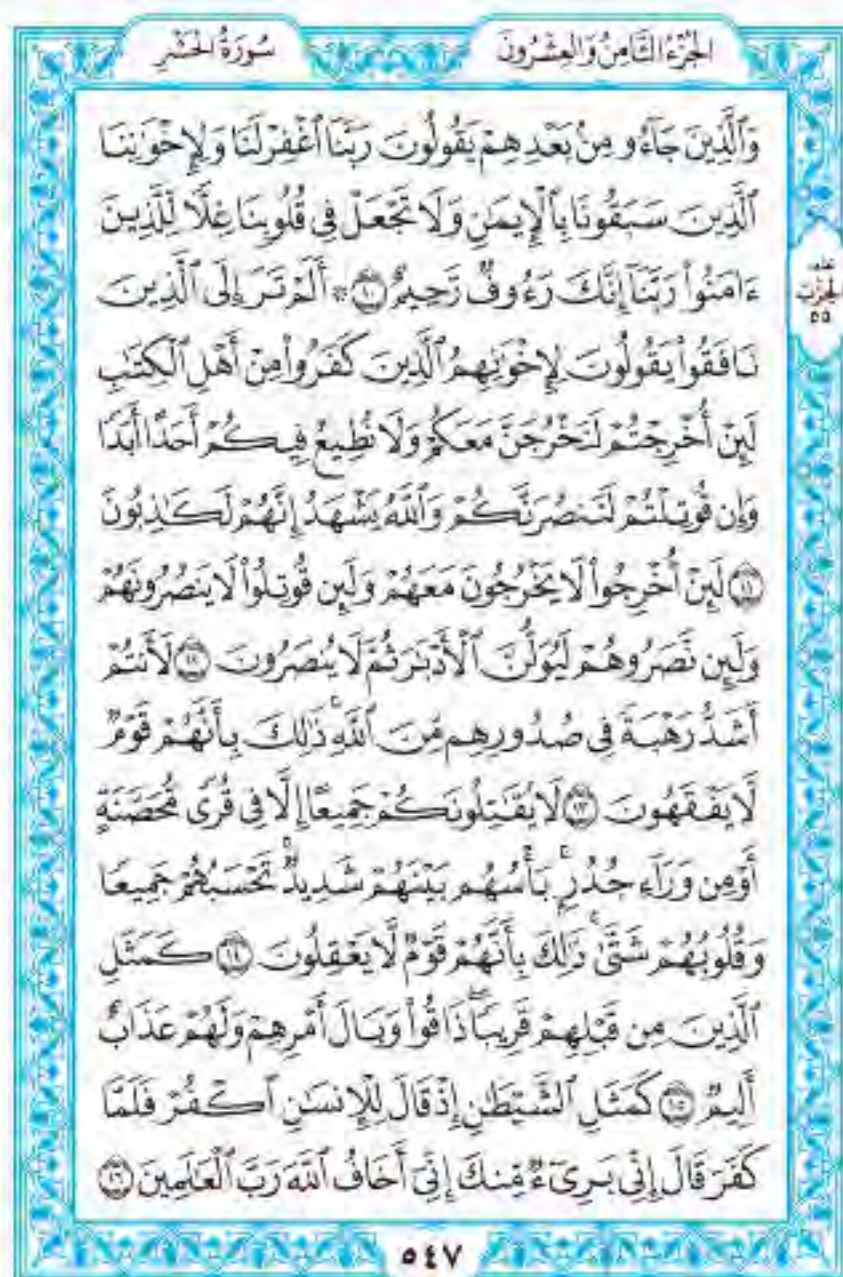 الجُزْءُ الثَّامِنُ وَالعِشْرُونَ سُورَةُ الحَشْرِ
وَٱلَّذِينَ جَآءُو مِنۢ بَعْدِهِمْ يَقُولُونَ رَبَّنَا ٱغْفِرْ لَنَا وَلِإِخْوَٰنِنَا
ٱلَّذِينَ سَبَقُونَا بِٱلْإِيمَٰنِ وَلَا تَجْعَلْ فِى قُلُوبِنَا غِلًّا لِّلَّذِينَ
ءَامَنُوا۟ رَبَّنَآ إِنَّكَ رَءُوفٌ رَّحِيمٌ ١٠ ۞ أَلَمْ تَرَ إِلَى ٱلَّذِينَ
الحِزْب
٥٥
نَافَقُوا۟ يَقُولُونَ لِإِخْوَٰنِهِمُ ٱلَّذِينَ كَفَرُوا۟ مِنْ أَهْلِ ٱلْكِتَٰبِ
لَئِنْ أُخْرِجْتُمْ لَنَخْرُجَنَّ مَعَكُمْ وَلَا نُطِيعُ فِيكُمْ أَحَدًا أَبَدًا
وَإِن قُوتِلْتُمْ لَنَنصُرَنَّكُمْ وَٱللَّهُ يَشْهَدُ إِنَّهُمْ لَكَٰذِبُونَ
١١ لَئِنْ أُخْرِجُوا۟ لَا يَخْرُجُونَ مَعَهُمْ وَلَئِن قُوتِلُوا۟ لَا يَنصُرُونَهُمْ
وَلَئِن نَّصَرُوهُمْ لَيُوَلُّنَّ ٱلْأَدْبَٰرَ ثُمَّ لَا يُنصَرُونَ ١٢ لَأَنتُمْ
أَشَدُّ رَهْبَةً فِى صُدُورِهِم مِّنَ ٱللَّهِ ۚ ذَٰلِكَ بِأَنَّهُمْ قَوْمٌ
لَّا يَفْقَهُونَ ١٣ لَا يُقَٰتِلُونَكُمْ جَمِيعًا إِلَّا فِى قُرًى مُّحَصَّنَةٍ
أَوْ مِن وَرَآءِ جُدُرٍۭ ۚ بَأْسُهُم بَيْنَهُمْ شَدِيدٌ ۚ تَحْسَبُهُمْ جَمِيعًا
وَقُلُوبُهُمْ شَتَّىٰ ۚ ذَٰلِكَ بِأَنَّهُمْ قَوْمٌ لَّا يَعْقِلُونَ ١٤ كَمَثَلِ
ٱلَّذِينَ مِن قَبْلِهِمْ قَرِيبًا ۖ ذَاقُوا۟ وَبَالَ أَمْرِهِمْ وَلَهُمْ عَذَابٌ
أَلِيمٌ ١٥ كَمَثَلِ ٱلشَّيْطَٰنِ إِذْ قَالَ لِلْإِنسَٰنِ ٱكْفُرْ فَلَمَّا
كَفَرَ قَالَ إِنِّى بَرِىٓءٌ مِّنكَ إِنِّىٓ أَخَافُ ٱللَّهَ رَبَّ ٱلْعَٰلَمِينَ ١٦
٥٤٧